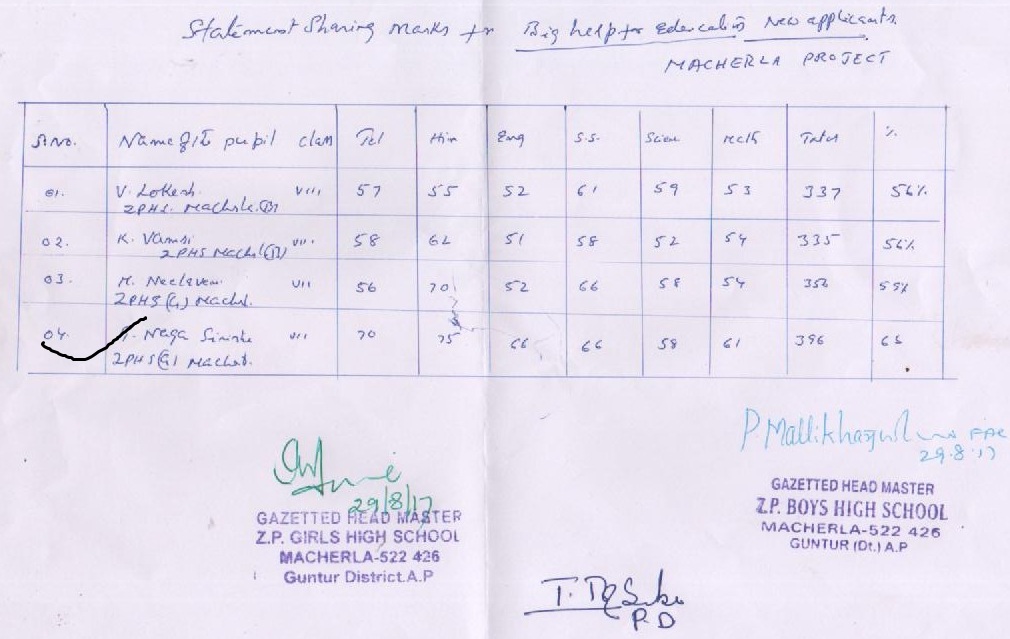 Statement Sharing Marks for Big help for Education New applicants.
MACHERLA PROJECT
Sl.No. Name of the pupil class Tel Hin Eng S.S. Scien Math Total %
01. V. Lokesh VIII 57 55 52 61 59 53 337 56%
ZPHS. Machrle.(B)
02. K. Vamsi VII 58 62 51 58 52 54 335 56%
ZPHS Machl(B)
03. M. Neelaveni VII 56 70 52 66 58 54 356 59%
ZPHS (G) Machrl.
04. Naga Sirisha VII 70 75 66 66 58 61 396 66
ZPHS(G) Machrl.
29/8/17
GAZETTED HEAD MASTER
Z.P. GIRLS HIGH SCHOOL
MACHERLA-522 426
Guntur District.A.P
P. Mallikharjuna FAC
29.8.17
GAZETTED HEAD MASTER
Z.P. BOYS HIGH SCHOOL
MACHERLA-522 426
GUNTUR (Dt.) A.P
P.D